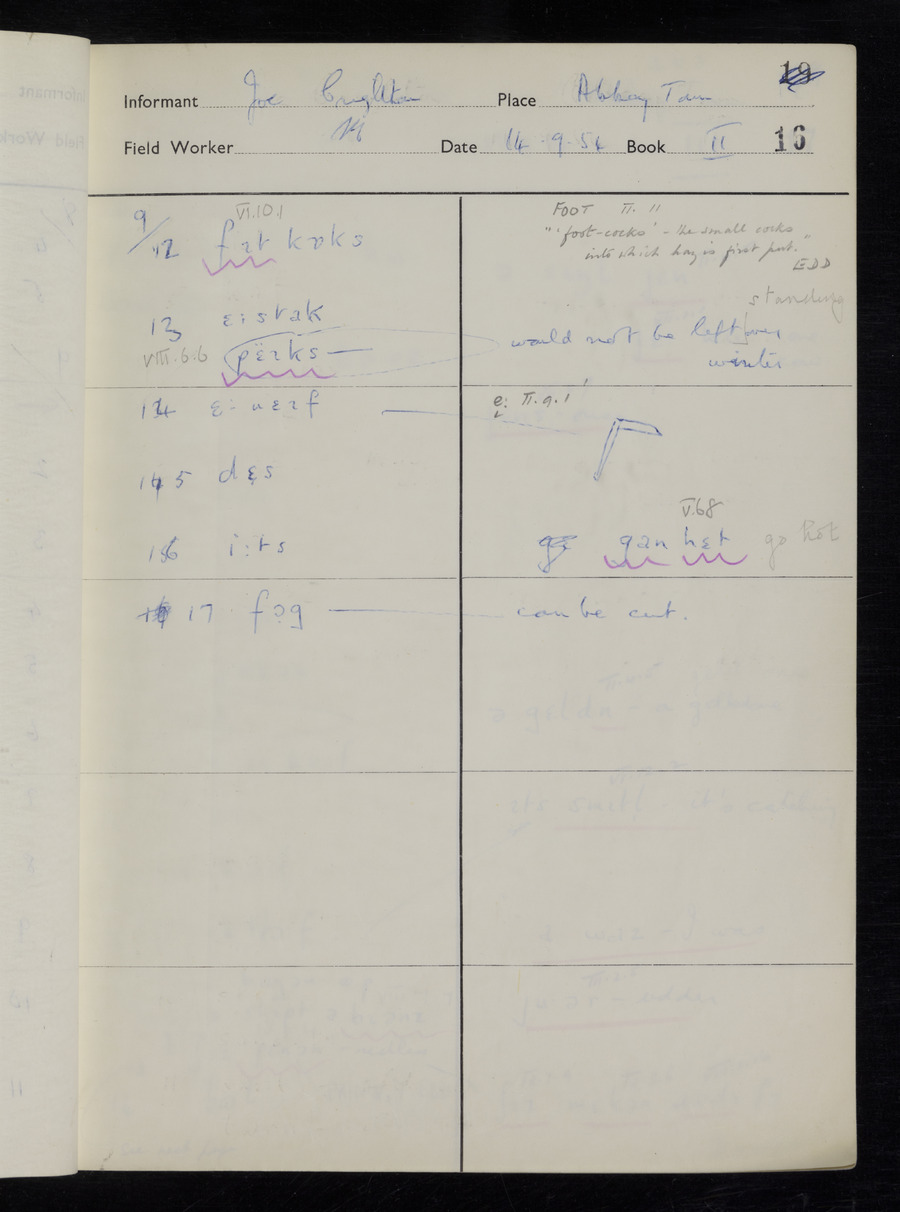 19
Informant Joe Place Abbey Town
Field Worker Date 14.9.54 Book II 16
9/12 VI.10.1
fɪt kɒks
FOOT II. 11
"'foot-cocks' - the small cocks
into which hay is first put."
EDD
13 ɛ:stak
VIII.6.6 pɛrks —
standing
would not be left over
winter
14 ɛ:
e: II.9.1
15 dɛs
16 i:ts
V.68
gan hɛt go hot
17 fɔg —
can be cut.